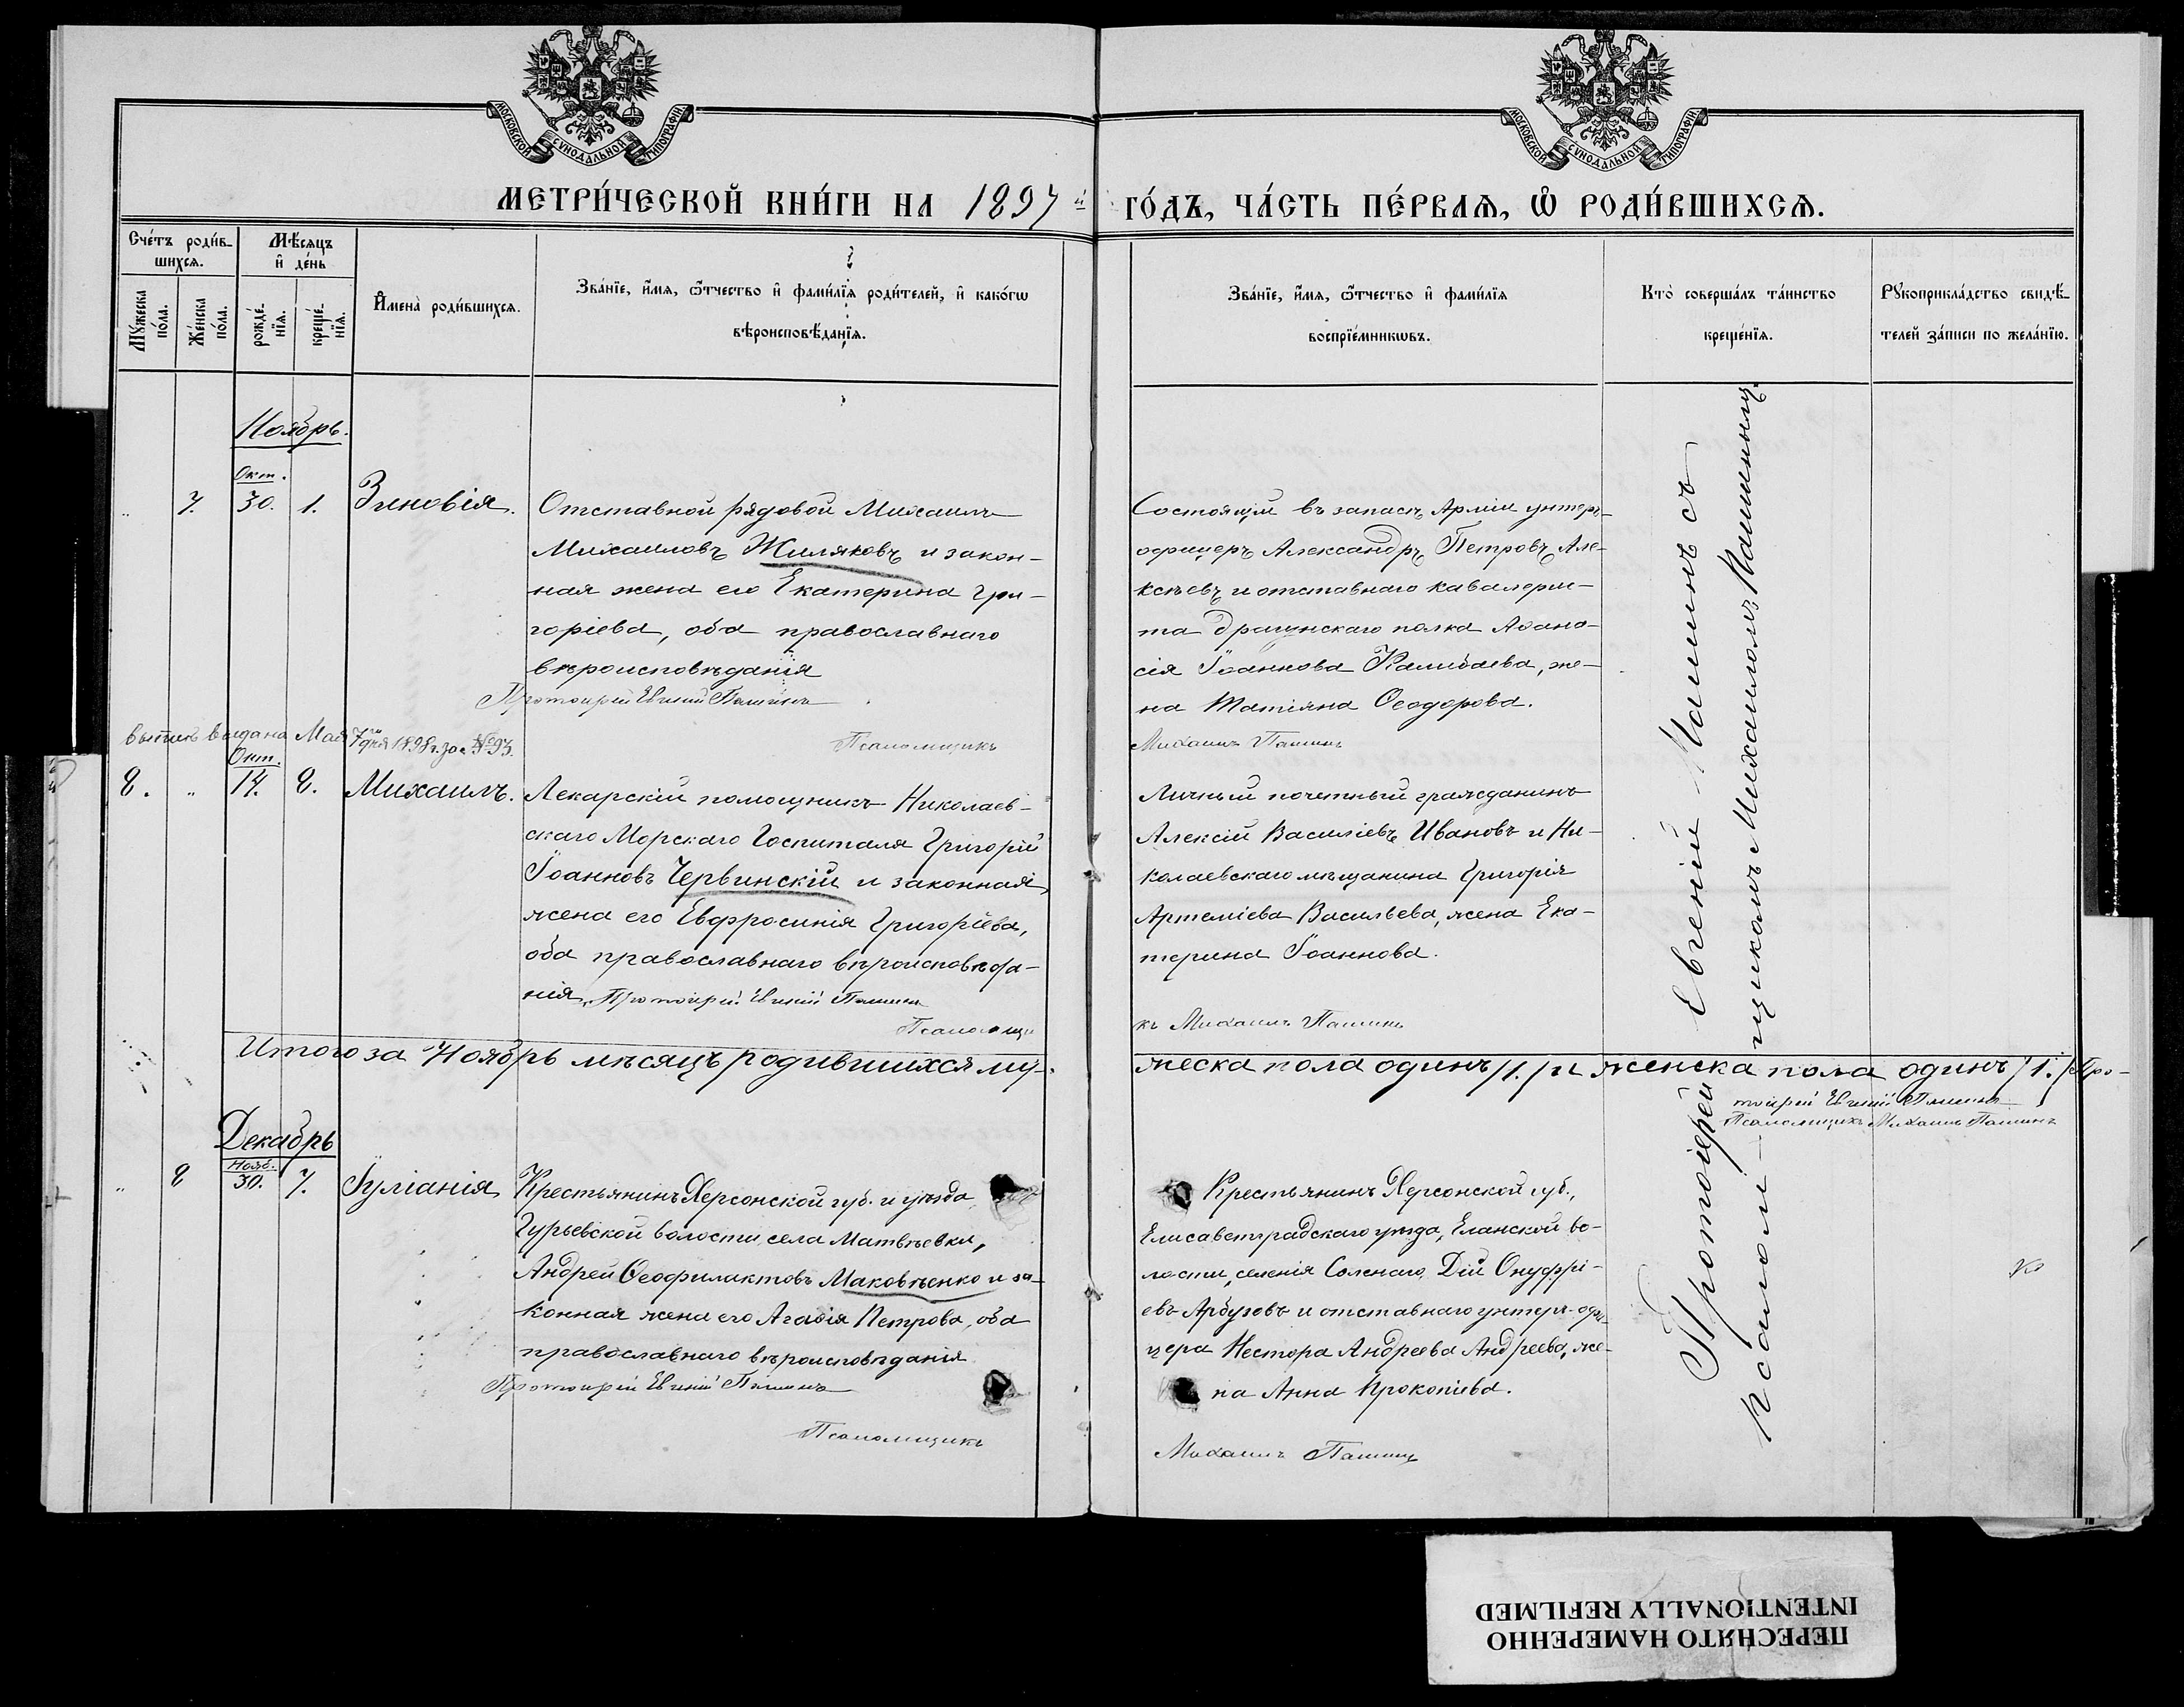 МОСКОВСКОЙ СѴНОДАЛЬНОЙ ТИПОГРАФІИ
МОСКОВСКОЙ СѴНОДАЛЬНОЙ ТИПОГРАФІИ
МЕТРИ́ЧЕСКОЙ КНИ́ГИ НА 1897 й
ГО́ДЪ, ЧА́СТЬ ПЕ́РВАѦ, Ѡ҆ РОДИ́ВШИХСѦ.
Сче́тъ роди́в-
шихсѧ.
Мѣ́сѧцъ
и҆ де́нь
Мꙋ́жеска
по́ла.
Же́нска
по́ла.
рожде́-
нїѧ.
креще́-
нїѧ.
И҆мена̀ роди́вшихсѧ.
Зва́нїе, и҆́мѧ, ѻ҆́тчество и҆ фами́лїѧ роди́телей, и҆ како́гѡ
вѣроисповѣ́данїѧ.
Зва́нїе, и҆́мѧ, ѻ҆́тчество и҆ фами́лїѧ
воспрїе́мникѡвъ.
Кто̀ соверша́лъ та́инство
креще́нїѧ.
Рꙋкоприкла́дство свидѣ́-
телей за́писи по жела́нїю.
Ноябрь.
Окт.
„ 7. 30. 1. Зиновія.
Отставной рядовой Михаилъ
Михаиловъ Жиляковъ и закон-
ная жена его Екатерина Гри-
горіева, оба православнаго
вѣроисповѣданія
Протоіерей Евгеній Пашинъ
Псаломщикъ
Состоящій въ запасѣ Арміи унтеръ-
офицеръ Александръ Петровъ Але-
ксѣевъ и отставнаго кавалерис-
та драгунскаго полка Аѳана-
сія Іоаннова, же-
на Татіана Ѳеодорова.
Михаилъ Пашинъ
выпись выдана Мая 7го дня 1898 г. за № 93.
Окт.
8. „ 14. 8. Михаилъ.
Лекарскій помощникъ Николаев-
скаго Морскаго Госпиталя Григорій
Іоанновъ Червинскій и законная
жена его Евфросинія Григоріева,
оба православнаго вѣроисповѣда-
нія. Протоіерей Евгеній Пашинъ
Псаломщи
Личный почетный гражданинъ
Алексій Василіевъ Ивановъ и Ни-
колаевскаго мѣщанина Григорія
Артеміева Васильева, жена Ека-
терина Іоаннова.
къ Михаилъ Пашинъ
Итого за Ноябрь мѣсяцъ родившихся му-
жеска пола одинъ /1./ и женска пола одинъ /1./ Про-
тоіерей Евгеній Пашинъ
Псаломщикъ Михаилъ Пашинъ
Декабрь
Нояб.
„ 8 30. 7. Іуліанія
Крестьянинъ Херсонской губ. и уѣзда,
Гурьевской волости, села Матвѣевки,
Андрей Ѳеофилактовъ Маковѣенко и за-
конная жена его Агаѳія Петрова, оба
православнаго вѣроисповѣданія
Протоіерей Евгеній Пашинъ
Псаломщикъ
Крестьянинъ Херсонской губ.,
Елисаветградскаго уѣзда, Еланской во-
лости, селенія Соленаго, Дій Онуфрі-
евъ Арбузовъ и отставнаго унтеръ-офи-
цера Нестора Андреева Андреева, же-
на Анна Прокопіева.
Михаилъ Пашинъ
Протоіерей Евгеній Пашинъ съ
псаломщикомъ Михаиломъ Пашинымъ.
ПЕРЕСНЯТО НАМЕРЕННО
INTENTIONALLY REFILMED